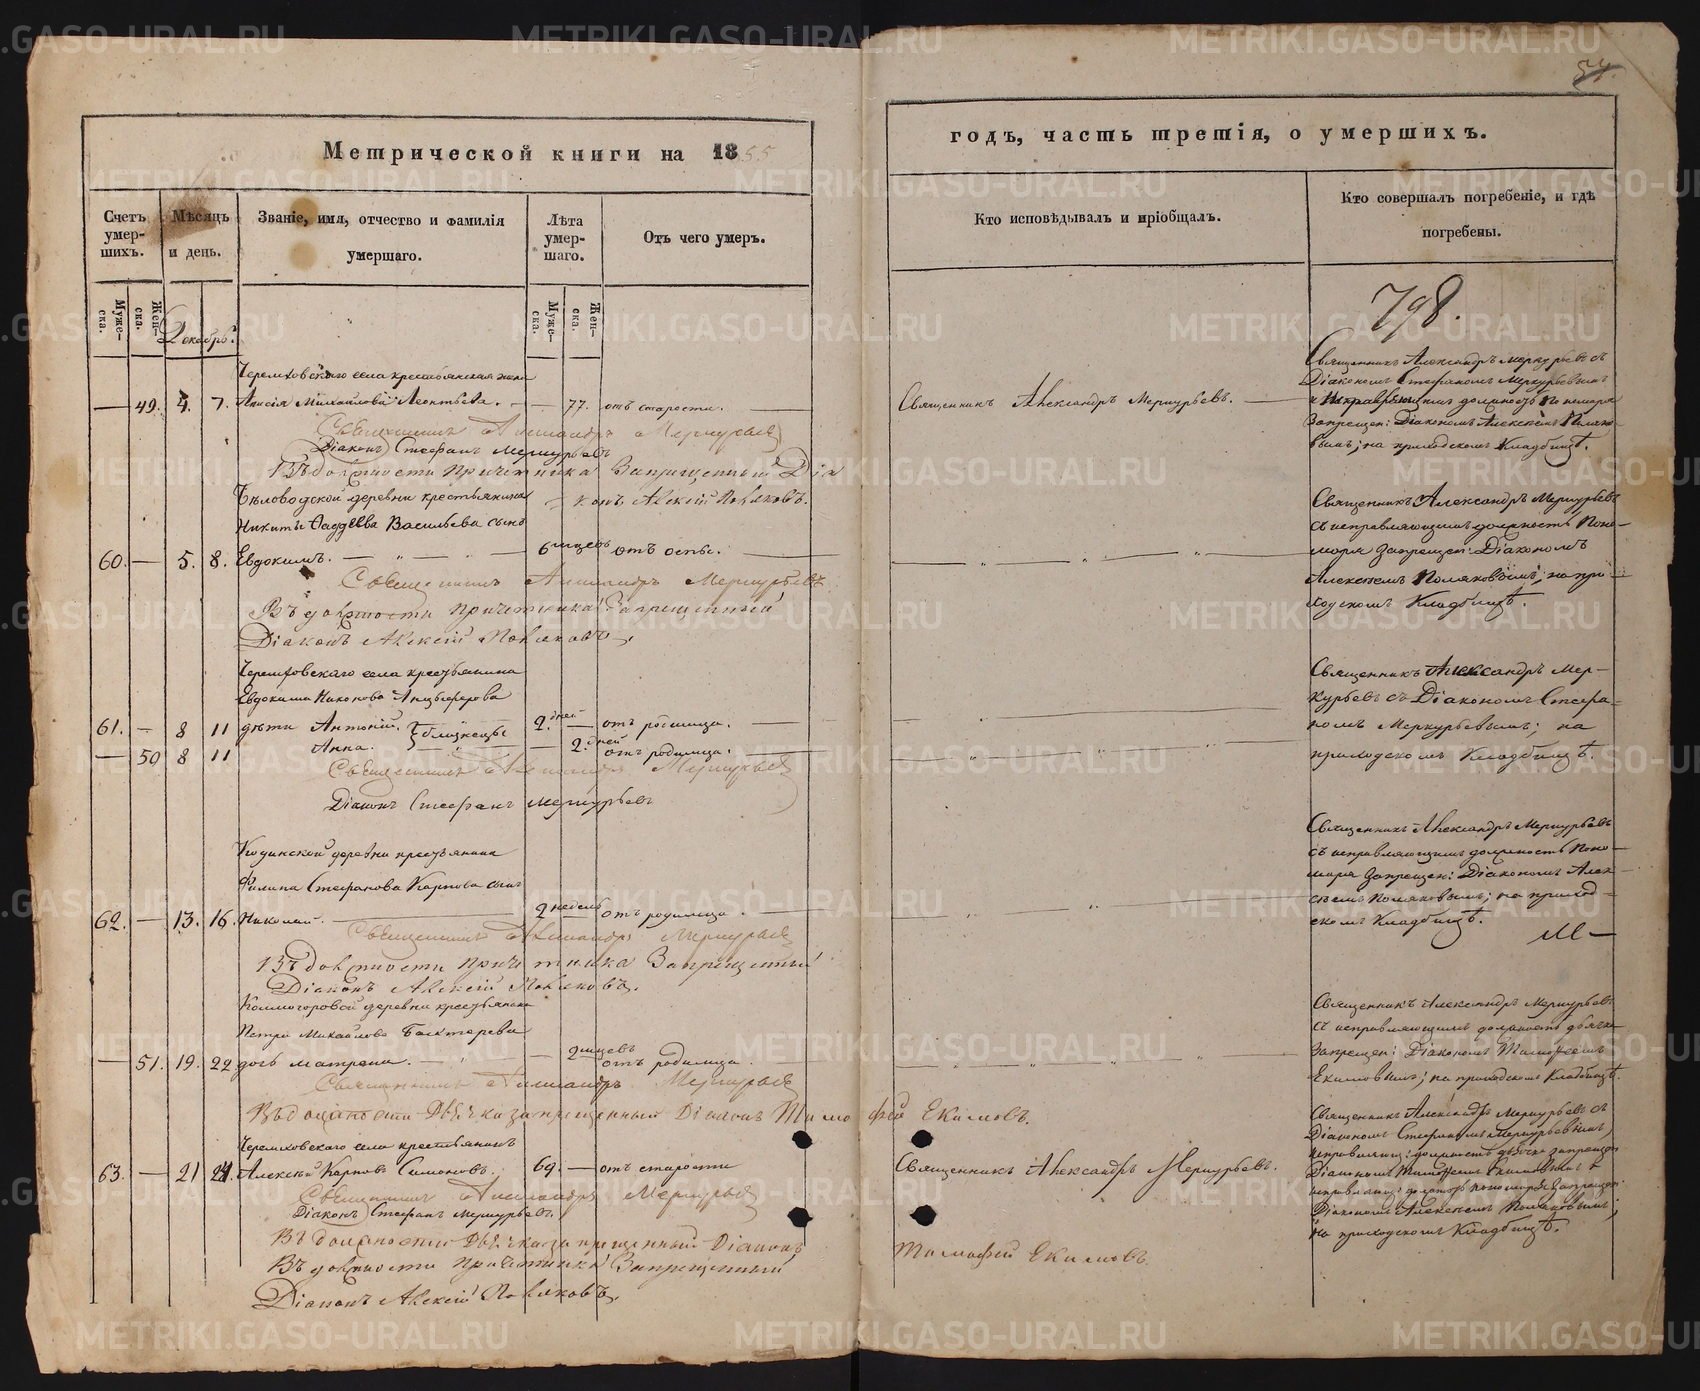 54.
Метрической книги на 1855
годъ, часть третія, о умершихъ.
Счетъ умер-шихъ.
Мѣсяцъ и день.
Званіе, имя, отчество и фамилія умершаго.
Лѣта умер-шаго.
Отъ чего умеръ.
Кто исповѣдывалъ и пріобщалъ.
Кто совершалъ погребеніе, и гдѣ погребены.
Муже-ска.
Жен-ска.
Муже-ска.
Жен-ска.
Декабрь.
798.
Черемховскаго села крестьянская жена
— 49. 4. 7. Анисія Михайлова Леонтьева. — 77. отъ старости.
Священникъ Александръ Меркурьевъ.
Священникъ Александръ Меркурьевъ съ
Діакономъ Стефаномъ Меркурьевымъ
и исправляющимъ должность Пономаря
Запрещен: Діакономъ Алексѣемъ Поляко-
вымъ; на приходскомъ Кладбищѣ.
Священникъ Александръ Меркурьевъ
Діаконъ Стефанъ Меркурьевъ
Въ должности Причетника Запрещенный Діа
конъ Алексій Поляковъ.
Бѣловодской деревни крестьянина
Никиты Фаддѣева Васильева сынъ
60. — 5. 8. Евдокимъ. — 6 мцевъ отъ оспы.
Священникъ Александръ Меркурьевъ
съ исправляющимъ должность Поно-
маря Запрещен: Діакономъ
Алексѣемъ Поляковымъ; на при-
ходскомъ Кладбищѣ.
Священникъ Александръ Меркурьевъ
Въ должности Причетника Запрещенный
Діаконъ Алексій Поляковъ.
Черемховскаго села крестьянина
Евдокима Никонова Анцыферова
61. — 8 11 дѣти Антоній. близнецы 2. дней — отъ родимца.
— 50 8 11 Анна. — 2. дней отъ родимца.
Священникъ Александръ Мер-
курьевъ съ Діакономъ Стефа-
номъ Меркурьевымъ; на
приходскомъ Кладбищѣ.
Священникъ Александръ Меркурьевъ
Діаконъ Стефанъ Меркурьевъ
Кодинской деревни крестьянина
Филипа Стефанова Карпова сынъ
62. — 13. 16. Николай. 2 недель — отъ родимца.
Священникъ Александръ Меркурьевъ
съ исправляющимъ должность Поно-
маря Запрещен: Діакономъ Алек-
сѣемъ Поляковымъ; на приход-
скомъ Кладбищѣ.
Священникъ Александръ Меркурьевъ
Въ должности Причетника Запрещенный
Діаконъ Алексій Поляковъ.
Колмогоровой деревни крестьянина
Петра Михайлова Бактерева
— 51. 19. 22 дочь Матрена. — 2 мцевъ отъ родимца.
Священникъ Александръ Меркурьевъ
съ исправляющимъ должность дьячка
Запрещен: Діакономъ Тимоѳеемъ
Екимовымъ; на приходскомъ Кладбищѣ.
Священникъ Александръ Меркурьевъ
Въ должности Дьячка запрещенный Діаконъ Тимофей Екимовъ.
Черемховскаго села крестьянинъ
63. — 21 24. Алексѣй Карповъ Симоновъ. 69. — отъ старости
Священникъ Александръ Меркурьевъ.
Священникъ Александръ Меркурьевъ съ
Діакономъ Стефаномъ Меркурьевымъ,
исправляющ: должность дьячка запрещен:
Діакономъ Тимоѳеемъ Екимовымъ и
исправляющ: должность пономаря Запрещен:
Діакономъ Алексѣемъ Поляковымъ;
на приходскомъ Кладбищѣ.
Священникъ Александръ Меркурьевъ
Діаконъ Стефанъ Меркурьевъ.
Въ должности Дьячка запрещенный Діаконъ
Тимофей Екимовъ.
Въ должности Причетника Запрещенный
Діаконъ Алексій Поляковъ.
METRIKI.GASO-URAL.RU